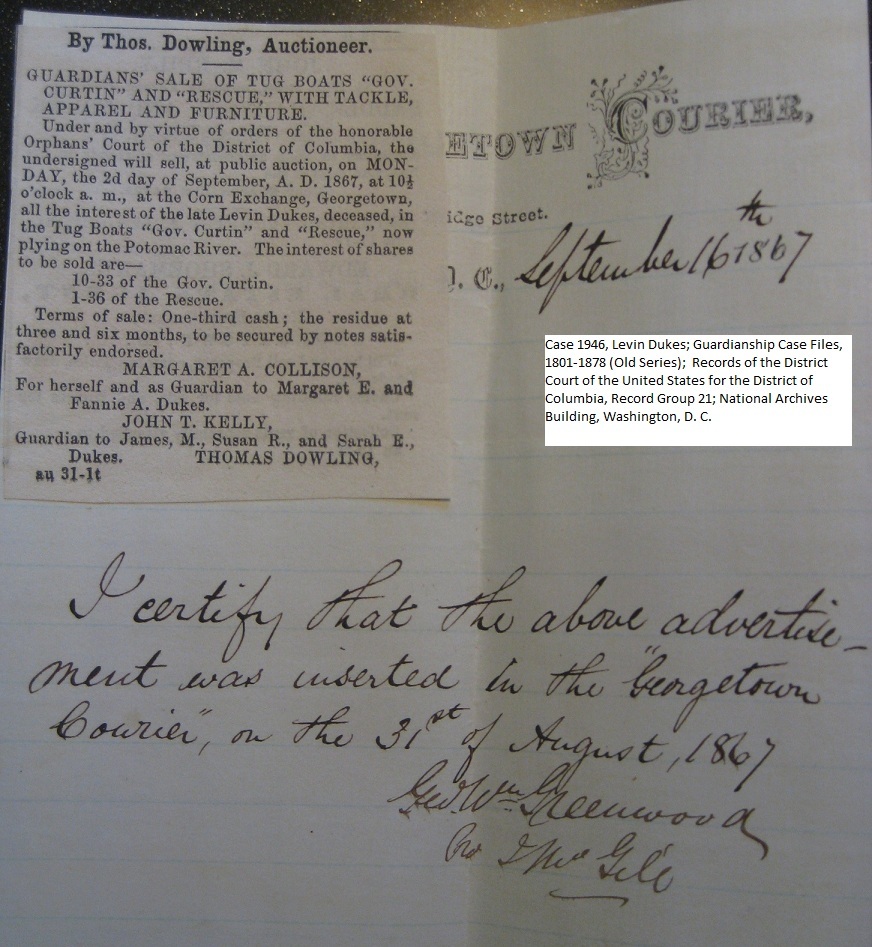 By Thos. Dowling, Auctioneer.
GUARDIANS' SALE OF TUG BOATS "GOV.
CURTIN" AND "RESCUE," WITH TACKLE,
APPAREL AND FURNITURE.
Under and by virtue of orders of the honorable
Orphans' Court of the District of Columbia, the
undersigned will sell, at public auction, on MON-
DAY, the 2d day of September, A. D. 1867, at 10½
o'clock a. m., at the Corn Exchange, Georgetown,
all the interest of the late Levin Dukes, deceased, in
the Tug Boats "Gov. Curtin" and "Rescue," now
plying on the Potomac River. The interest of shares
to be sold are—
10-33 of the Gov. Curtin.
1-36 of the Rescue.
Terms of sale: One-third cash; the residue at
three and six months, to be secured by notes satis-
factorily endorsed.
MARGARET A. COLLISON,
For herself and as Guardian to Margaret E. and
Fannie A. Dukes.
JOHN T. KELLY,
Guardian to James, M., Susan R., and Sarah E.,
Dukes. THOMAS DOWLING,
au 31-1t
ETOWN COURIER,
idge Street.
D. C., September 16th 1867
Case 1946, Levin Dukes; Guardianship Case Files,
1801-1878 (Old Series); Records of the District
Court of the United States for the District of
Columbia, Record Group 21; National Archives
Building, Washington, D. C.
I certify that the above advertise-
ment was inserted in the "Georgetown
Courier", on the 31st of August, 1867
Geo. Wm. Greenwood